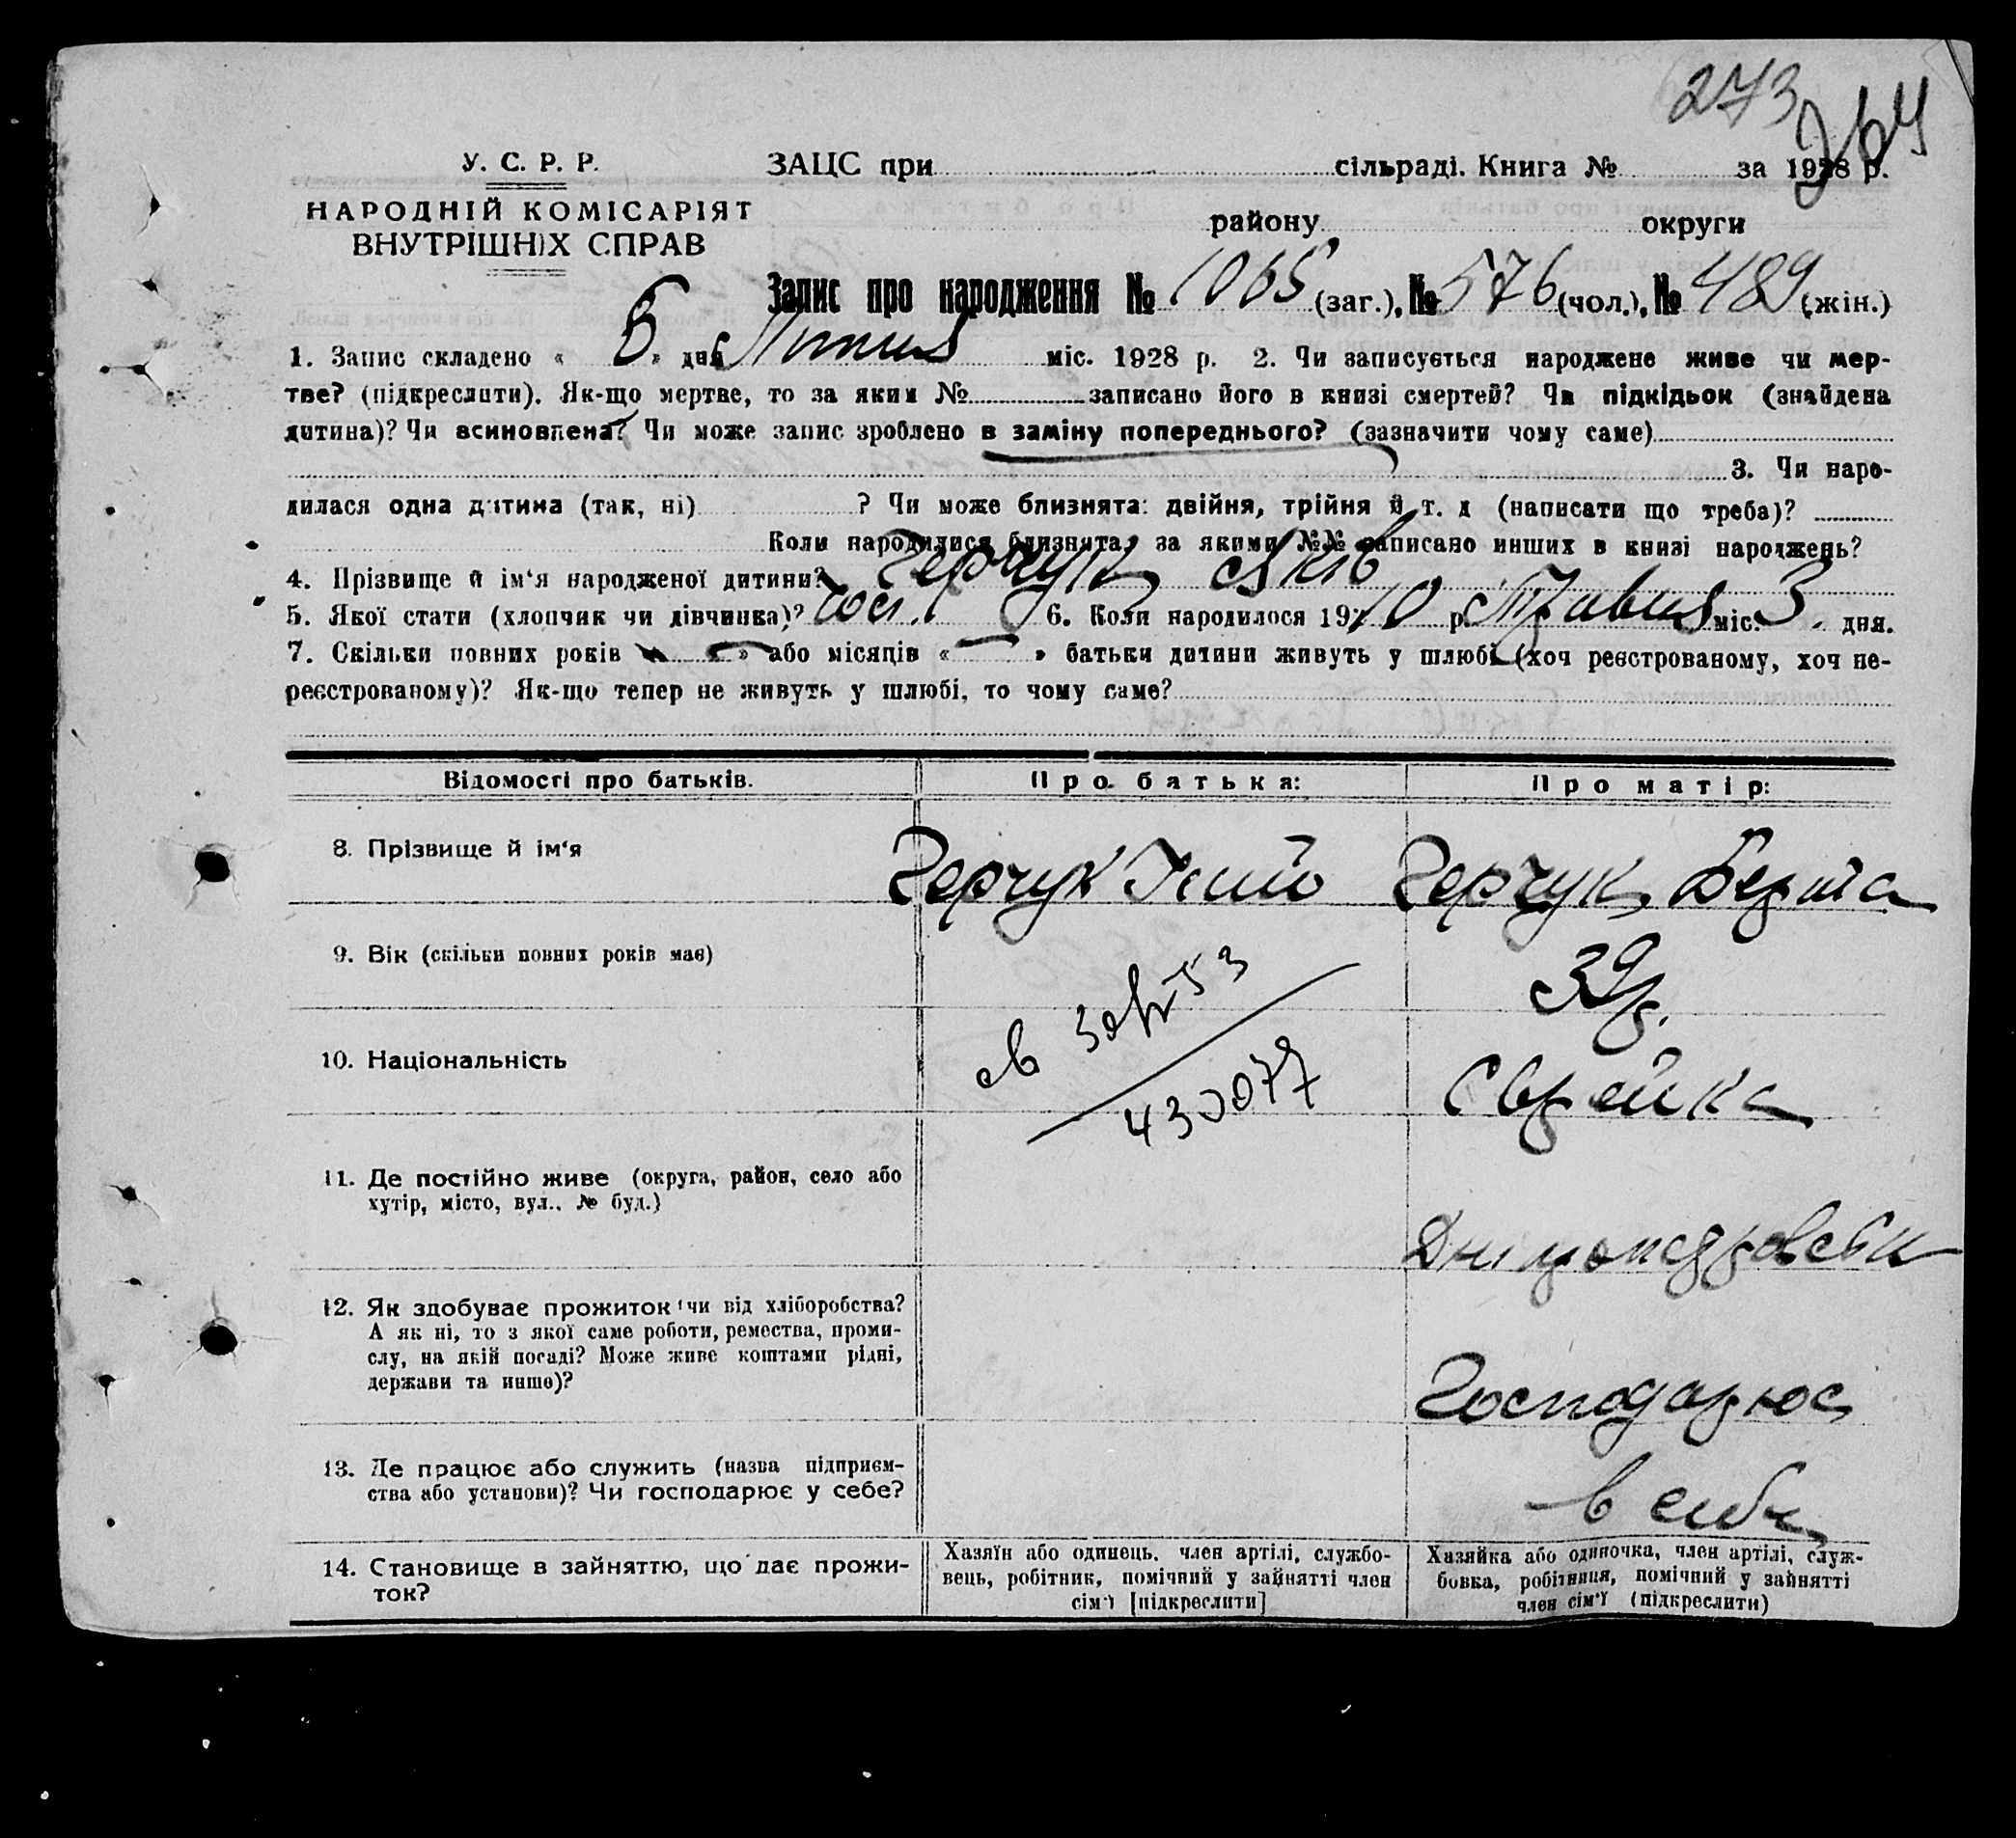 273
264
У. С. Р. Р. ЗАЦС при сільраді. Книга № за 1928 р.
НАРОДНІЙ КОМІСАРІЯТ
ВНУТРІШНІХ СПРАВ
району округи
Запис про народження № 1065 (заг.), № 576 (чол.), № 489 (жін.)
1. Запис складено « 6 » дня Липня міс. 1928 р. 2. Чи записується народжене живе чи мер-
тве? (підкреслити). Як-що мертве, то за яким № записано його в книзі смертей? Чи підкідьок (знайдена
дитина)? Чи всиновлена? Чи може запис зроблено в заміну попереднього? (зазначити чому саме)
3. Чи наро-
дилася одна дитина (так, ні) ? Чи може близнята: двійня, трійня й т. д (написати що треба)?
Коли народилися близнята, за якими №№ записано инших в книзі народжень?
4. Прізвище й ім‘я народженої дитини? Герчук Яків
5. Якої стати (хлопчик чи дівчинка)? 6. Коли народилося 1910 р. Травня міс. 3 дня.
7. Скільки повних років « » або місяців « » батьки дитини живуть у шлюбі (хоч реєстрованому, хоч не-
реєстрованому)? Як-що тепер не живуть у шлюбі, то чому саме?
Відомості про батьків. Про батька: Про матір:
8. Прізвище й ім‘я Герчук Герчук Берта
9. Вік (скільки повних років має) 39 р.
10. Національність Єврейка
св 53
430077
11. Де постійно живе (округа, район, село або
хутір, місто, вул., № буд.)
Дніпропедровськ
12. Як здобуває прожиток чи від хліборобства?
А як ні, то з якої саме роботи, ремества, проми-
слу, на якій посаді? Може живе коштами рідні,
держави та инше)?
Господарює
13. Де працює або служить (назва підприєм-
ства або установи)? Чи господарює у себе?
в себе
14. Становище в зайняттю, що дає прожи-
ток?
Хазяїн або одинець, член артілі, службо-
вець, робітник, помічний у зайнятті член
сім‘ї [підкреслити]
Хазяйка або одиночка, член артілі, служ-
бовка, робітниця, помічний у зайнятті
член сім‘ї (підкреслити)